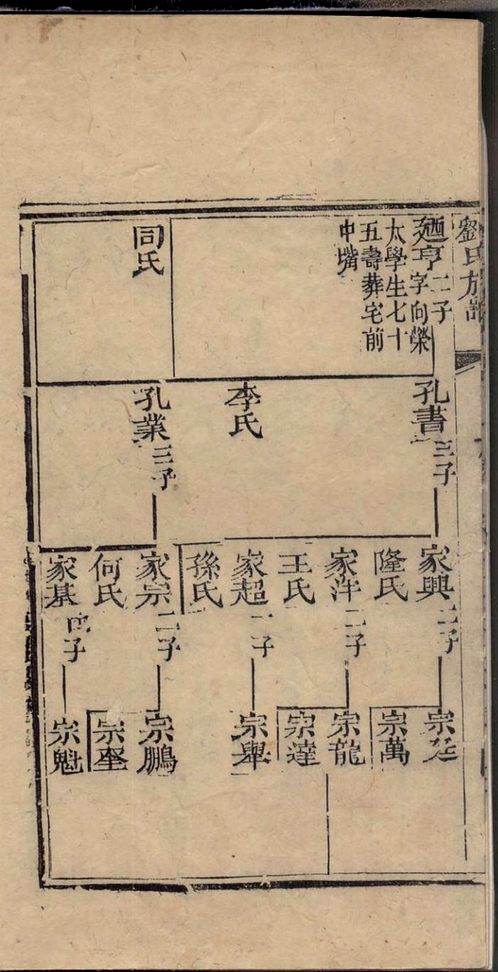 劉氏族譜
廼亨 二子 字向榮
太學生七十
五壽葬宅前
中嘴
同氏
孔書 三子
李氏
孔業 三子
家興 二子
隆氏
家洋 二子
王氏
家超 一子
孫氏
家宗 二子
何氏
家基 四子
宗廷
宗萬
宗龍
宗達
宗舉
宗鵬
宗奎
宗魁